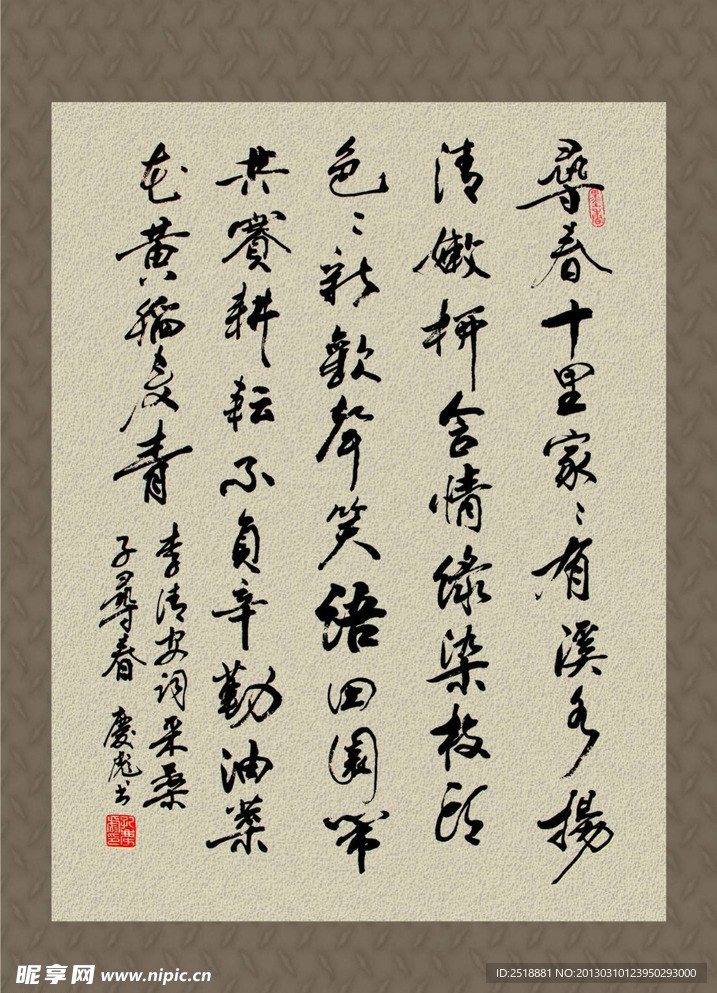 尋春十里家〻有溪水揚
清嫩柳含情綠染枝頭
色〻新歡聲笑語田園
共賽耕耘不負辛勤油菜
花黃稻麥青
李清安詞采桑
子尋春 慶彪书
昵享网 www.nipic.cn
ID:2518881 NO:20130310123950293000